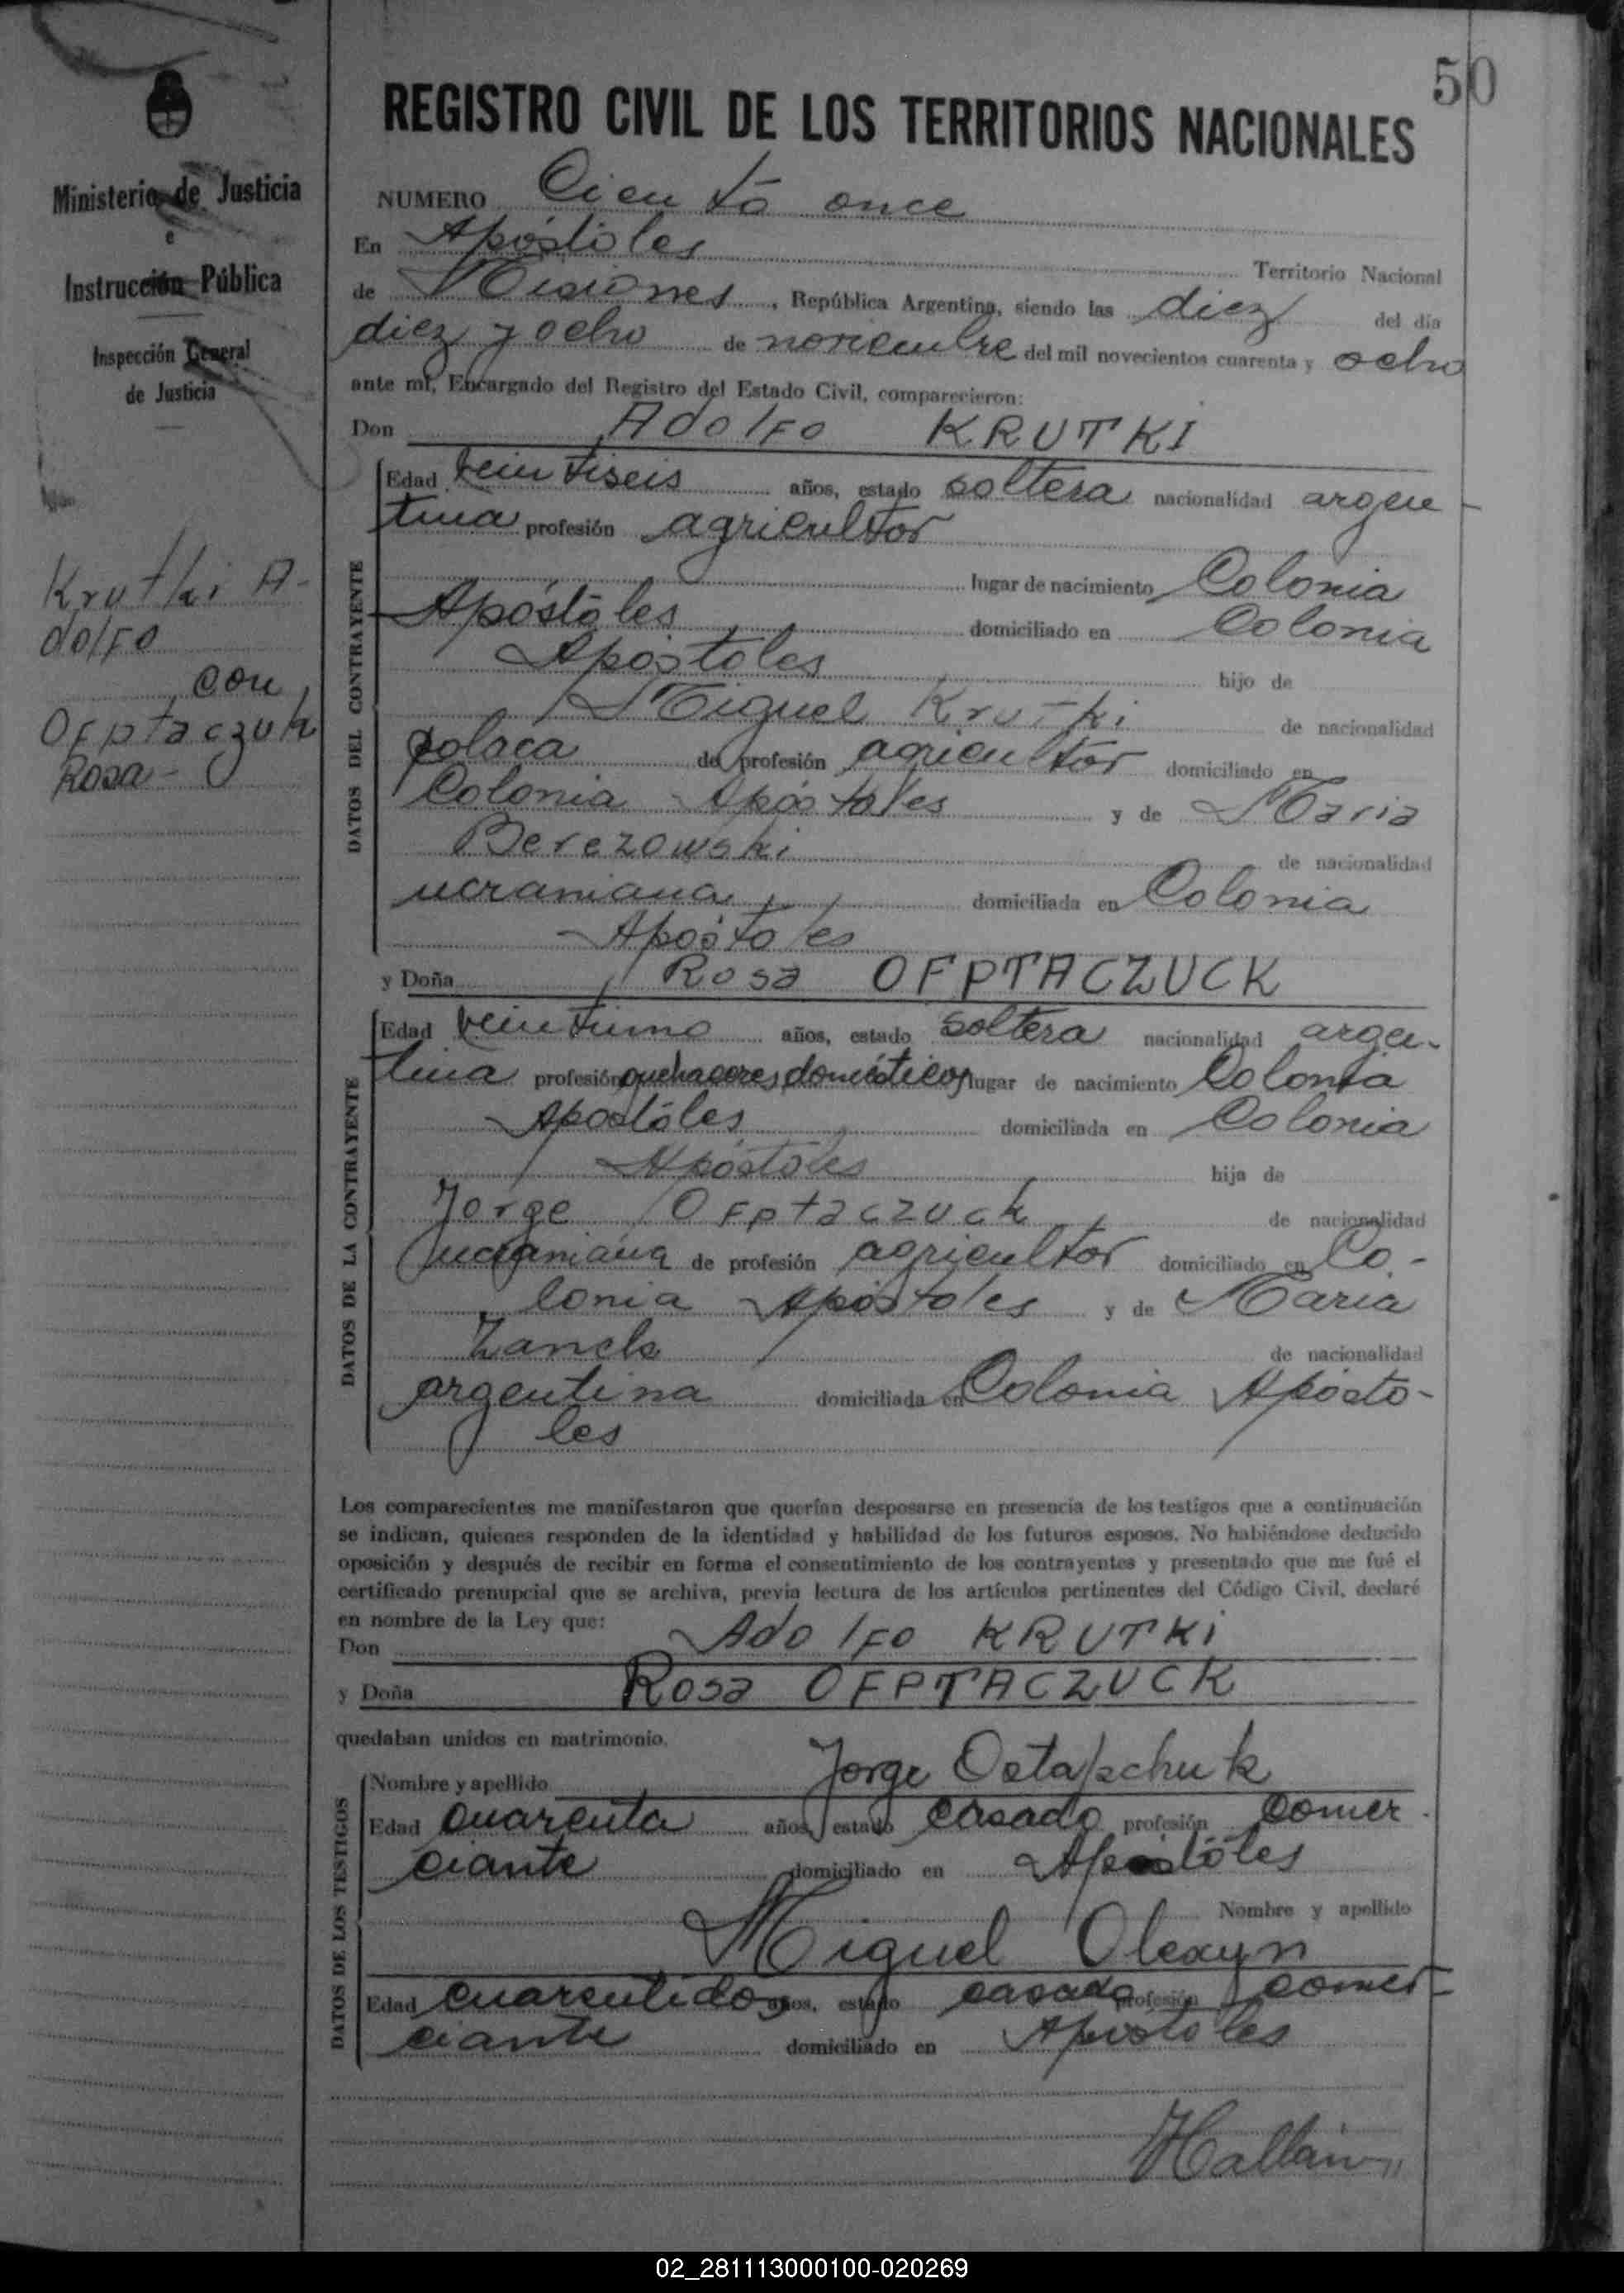 50
REGISTRO CIVIL DE LOS TERRITORIOS NACIONALES
Ministerio de Justicia
e
Instrucción Pública
Inspección General
de Justicia
Krutki A-
dolfo
con
Ofptaczuk
Rosa-
NUMERO Ciento once
En Apóstoles Territorio Nacional
de Misiones, República Argentina, siendo las diez del día
diez y ocho de noviembre del mil novecientos cuarenta y ocho
ante mí, Encargado del Registro del Estado Civil, comparecieron:
Don Adolfo KRUTKI
DATOS DEL CONTRAYENTE
Edad veintiseis años, estado soltera nacionalidad argen-
tina profesión agricultor
lugar de nacimiento Colonia
Apóstoles domiciliado en Colonia
Apóstoles hijo de
Miguel Krutki de nacionalidad
polaca de profesión agricultor domiciliado en
Colonia Apóstoles y de Maria
Berezowski de nacionalidad
ucraniana domiciliada en Colonia
Apóstoles
y Doña Rosa OFPTACZUCK
DATOS DE LA CONTRAYENTE
Edad veintiuno años, estado soltera nacionalidad argen-
tina profesión quehaceres domésticos lugar de nacimiento Colonia
Apostóles domiciliada en Colonia
Apóstoles hija de
Jorge Ofptaczuck de nacionalidad
ucraniana de profesión agricultor domiciliado en Co-
lonia Apóstoles y de Maria
Zanck de nacionalidad
argentina domiciliada en Colonia Apósto-
les
Los comparecientes me manifestaron que querían desposarse en presencia de los testigos que a continuación
se indican, quienes responden de la identidad y habilidad de los futuros esposos. No habiéndose deducido
oposición y después de recibir en forma el consentimiento de los contrayentes y presentado que me fué el
certificado prenupcial que se archiva, previa lectura de los artículos pertinentes del Código Civil, declaré
en nombre de la Ley que:
Don Adolfo KRUTKI
y Doña Rosa OFPTACZUCK
quedaban unidos en matrimonio.
DATOS DE LOS TESTIGOS
Nombre y apellido Jorge Ostapchuk
Edad cuarenta años, estado casado profesión comer-
ciante domiciliado en Apóstoles
Nombre y apellido
Miguel Olexyn
Edad cuarentidos años, estado casado profesión comer-
ciante domiciliado en Apostoles
02_281113000100-020269